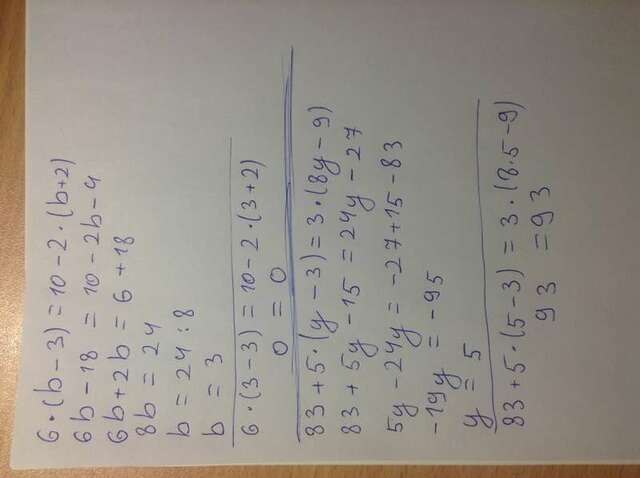 6·(b-3)=10-2·(b+2)
6b-18=10-2b-4
6b+2b=6+18
8b=24
b=24:8
b=3
6·(3-3)=10-2·(3+2)
0=0
83+5·(y-3)=3·(8y-9)
83+5y-15=24y-27
5y-24y=-27+15-83
-19y=-95
y=5
83+5·(5-3)=3·(8·5-9)
93=93